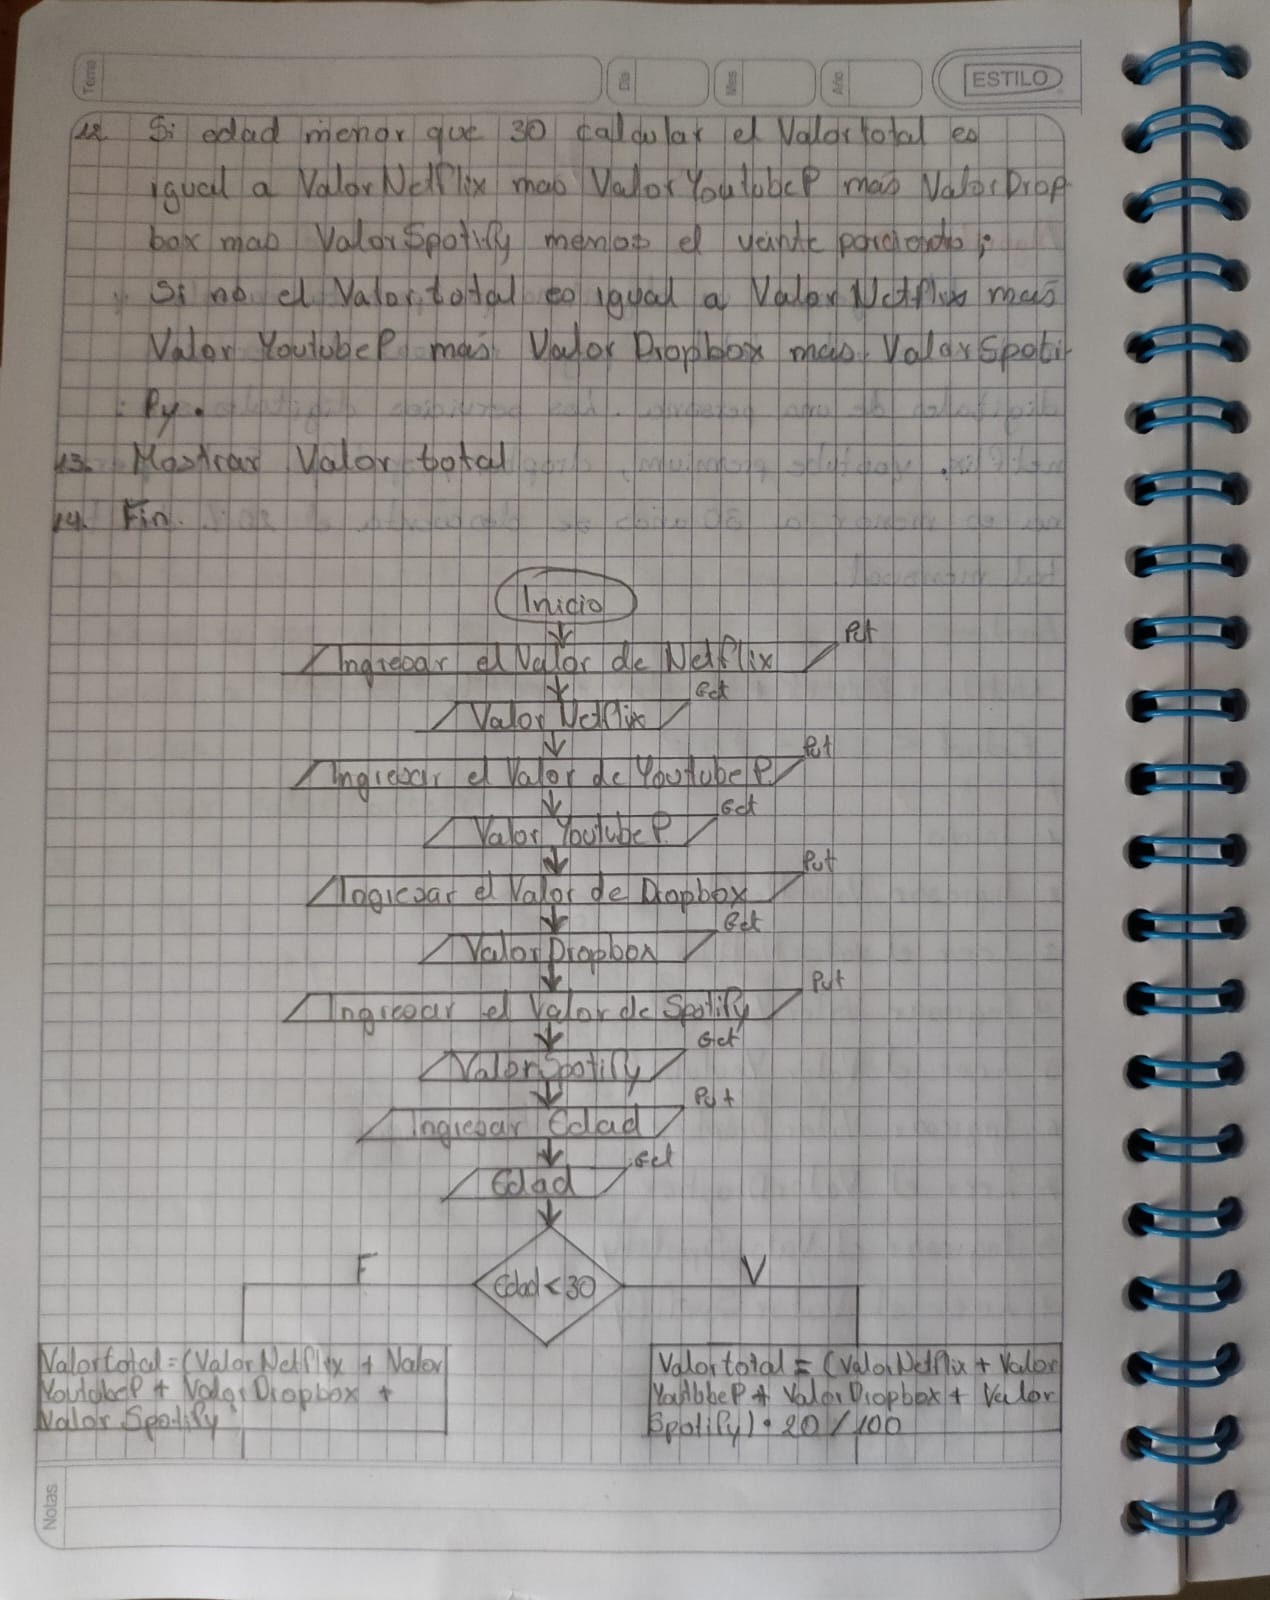 Tema
Dia
Mes
Año
ESTILO
12. Si edad menor que 30 calcular el Valortotal es
igual a ValorNetflix mas ValorYoutubeP mas ValorDrop
box mas ValorSpotify menos el veinte porciento;
Si no el Valor total es igual a ValorNetflix mas
Valor YoutubeP mas Valor Dropbox mas ValorSpoti
fy.
13. Mostrar Valor total
14. Fin.
Inicio
Ingresar el Valor de Netflix Put
Valor Netflix Get
Ingresar el Valor de YoutubeP Put
Valor YoutubeP. Get
Ingresar el Valor de Dropbox Put
ValorDropbox Get
Ingresar el Valor de Spotify Put
ValorSpotify Get
Ingresar Edad Put
Edad Get
F
Edad < 30
V
Valortotal = (ValorNetflix + Valor
YoutubeP + ValorDropbox +
Valor Spotify
Valortotal = (ValorNetflix + Valor
YoutubeP + ValorDropbox + Valor
Spotify) * 20 / 100
Notas